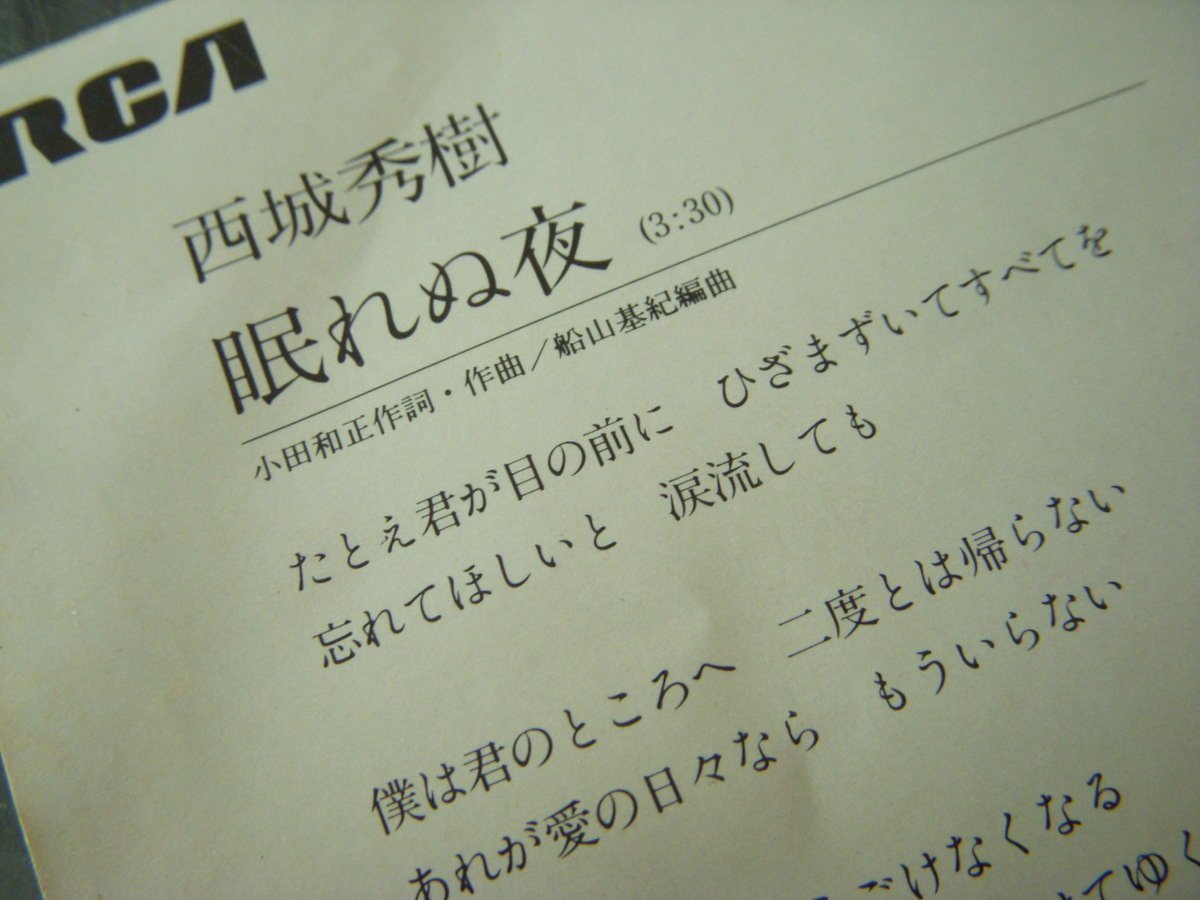 RCA
西城秀樹
眠れぬ夜 (3:30)
小田和正作詞・作曲/船山基紀編曲
たとえ君が目の前に ひざまずいてすべてを
忘れてほしいと 涙流しても
僕は君のところへ 二度とは帰らない
あれが愛の日々なら もういらない
ごけなくなる
てゆく